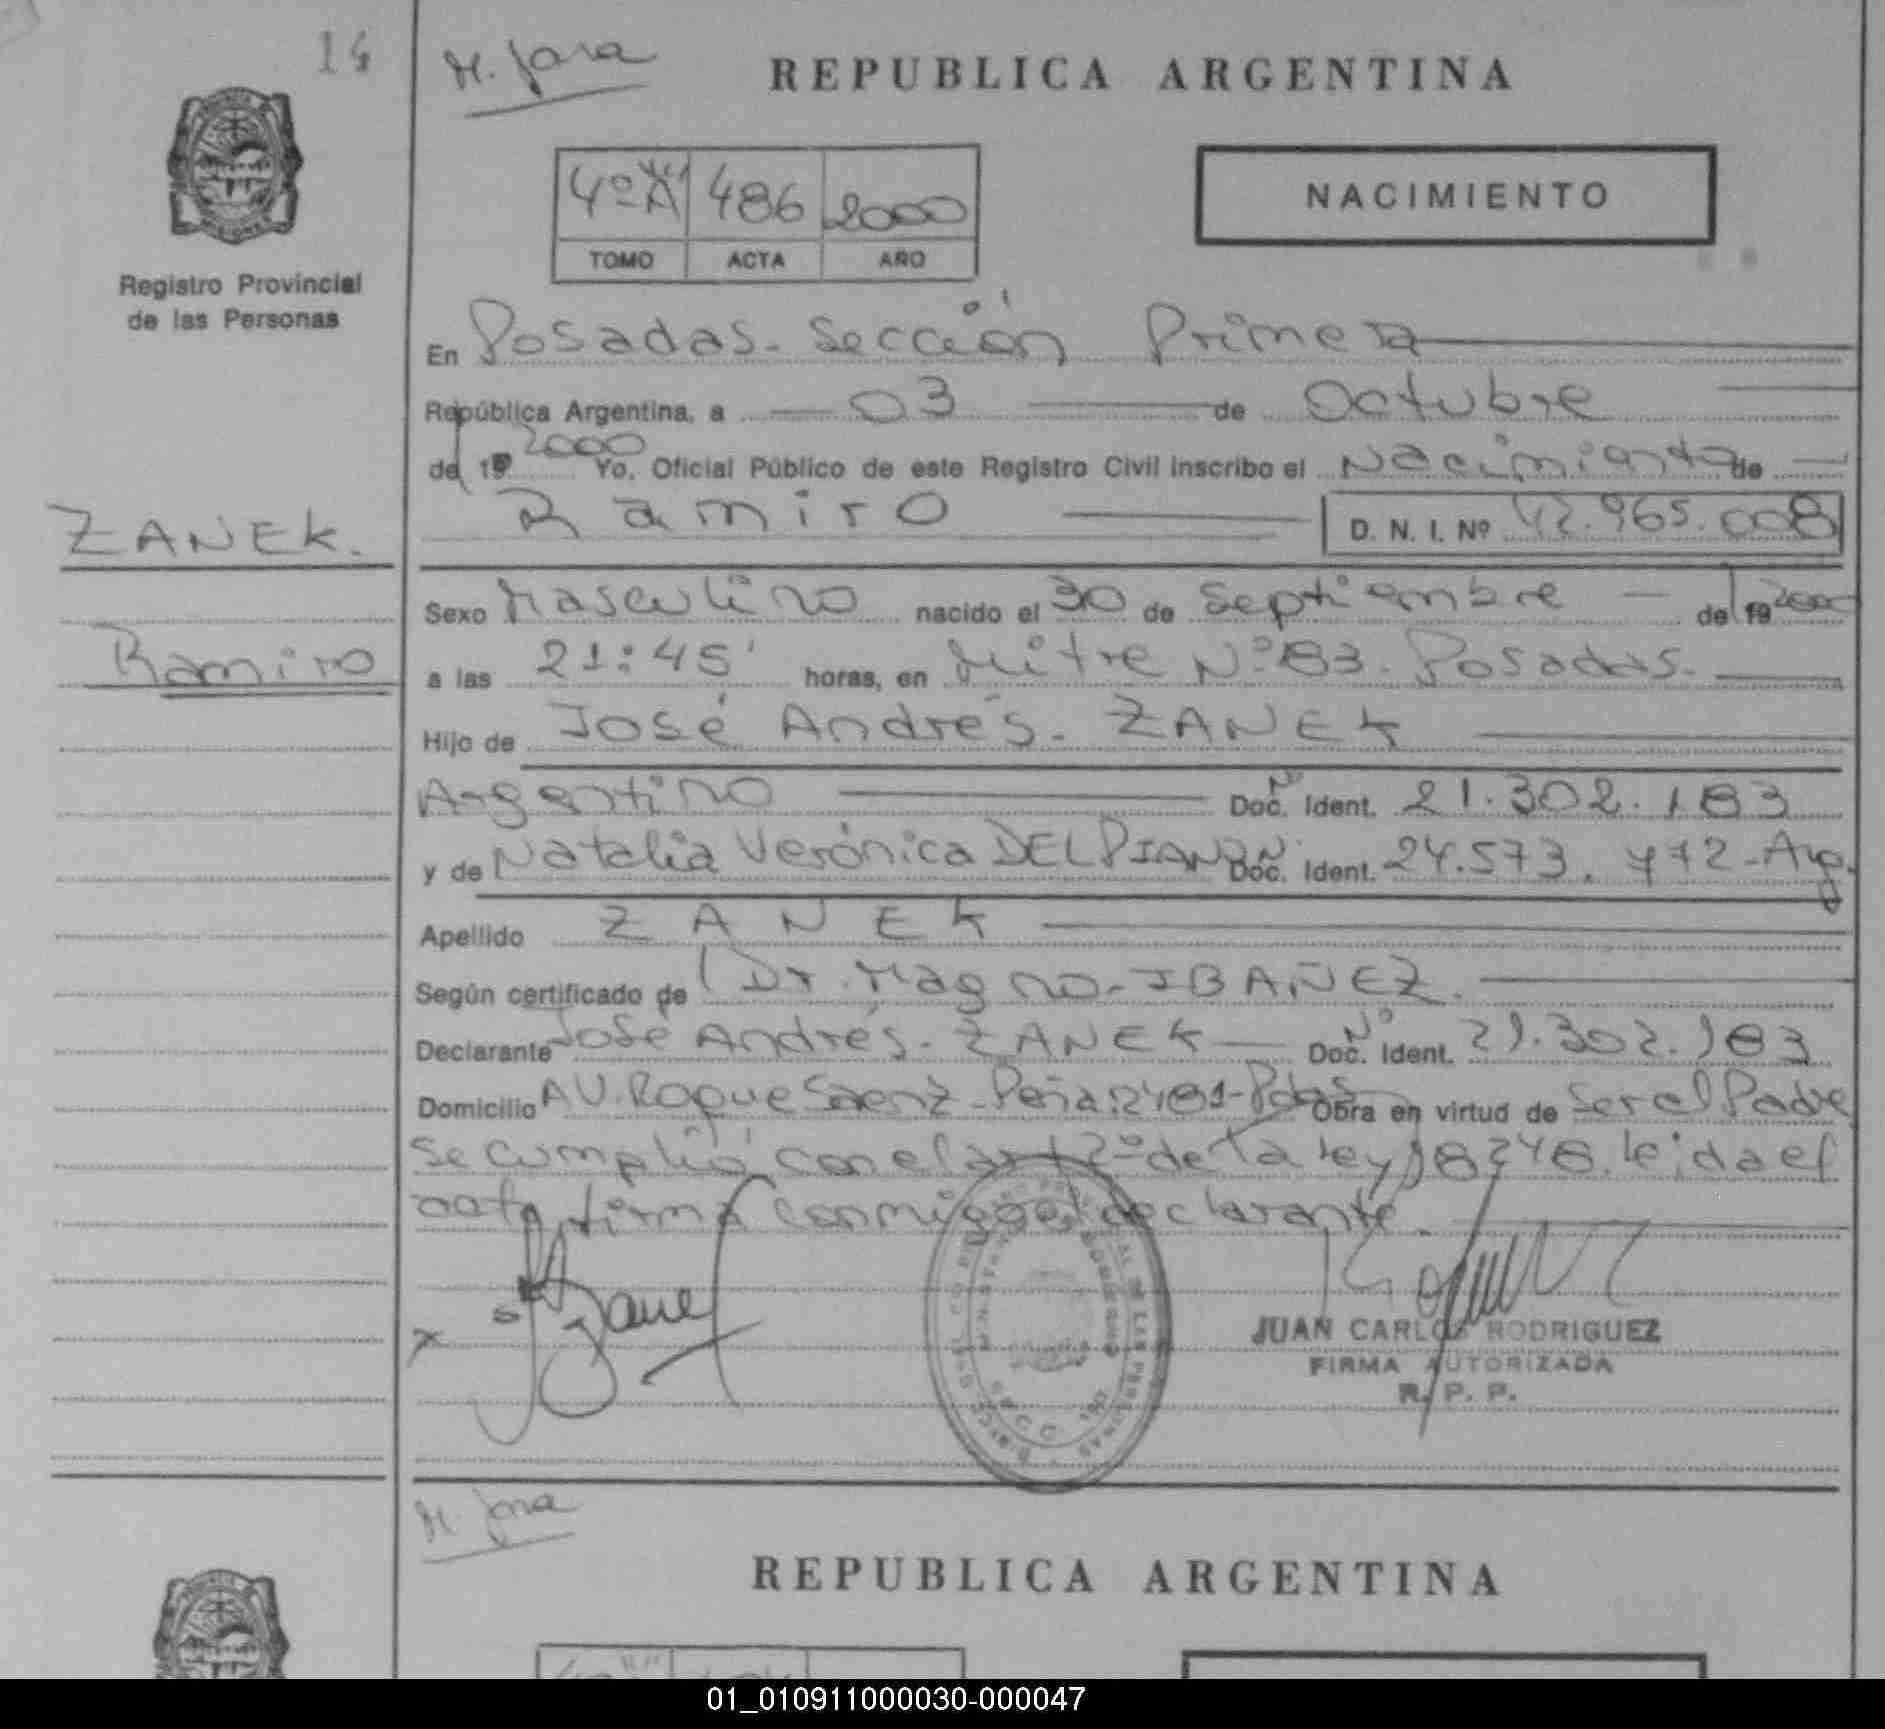 14
M. Jara
REPUBLICA ARGENTINA
4º "A" 486 2000
TOMO ACTA AÑO
NACIMIENTO
Registro Provincial
de las Personas
En Posadas - Sección Primera
República Argentina, a 03 de Octubre
de 19 2000 Yo, Oficial Público de este Registro Civil inscribo el Nacimiento de
ZANEK.
Ramiro D. N. I. Nº 42.965.008
Sexo Masculino nacido el 30 de Septiembre de 19 2000
Ramiro
a las 21:45' horas, en Mitre Nº 83 - Posadas.
Hijo de José Andrés - ZANEK
Argentino Doc. Nº Ident. 21.302.183
y de Natalia Verónica DELPIANO Doc. Nº Ident. 24.573.472 - Arg.
Apellido ZANEK
Según certificado de Dr. Magno - IBAÑEZ.
Declarante José Andrés - ZANEK Doc. Nº Ident. 21.302.183
Domicilio AV. Roque Saenz Peña 2481 - Pdas Obra en virtud de Ser el Padre
Se cumplió con el art 2º de la ley 18248. leida el
acta firma conmigo el declarante.
x
JUAN CARLOS RODRIGUEZ
FIRMA AUTORIZADA
R. P. P.
M. Jara
REPUBLICA ARGENTINA
01_010911000030-000047